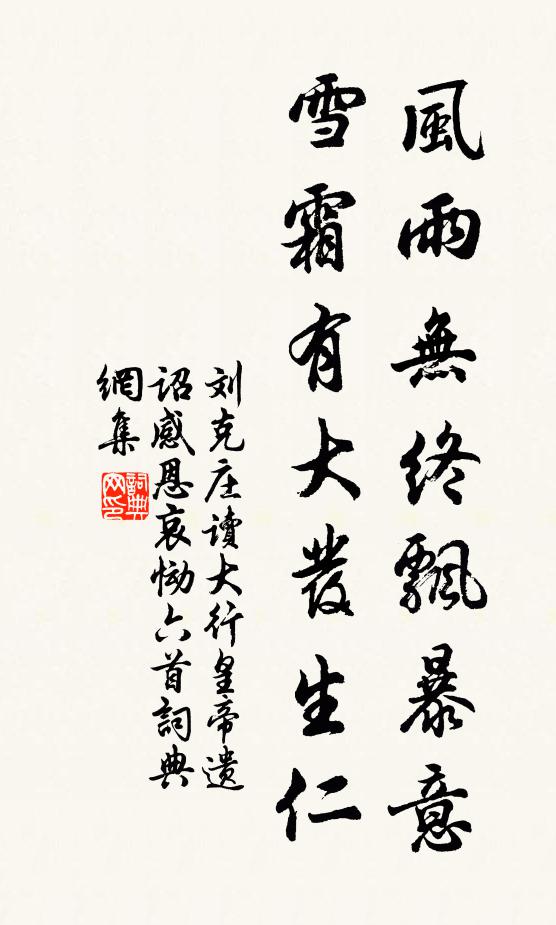 風雨無終飄暴意
雪霜有大發生仁
刘克庄讀大行皇帝遗
诏感恩哀恸六首詞典
網集
詞典
网印